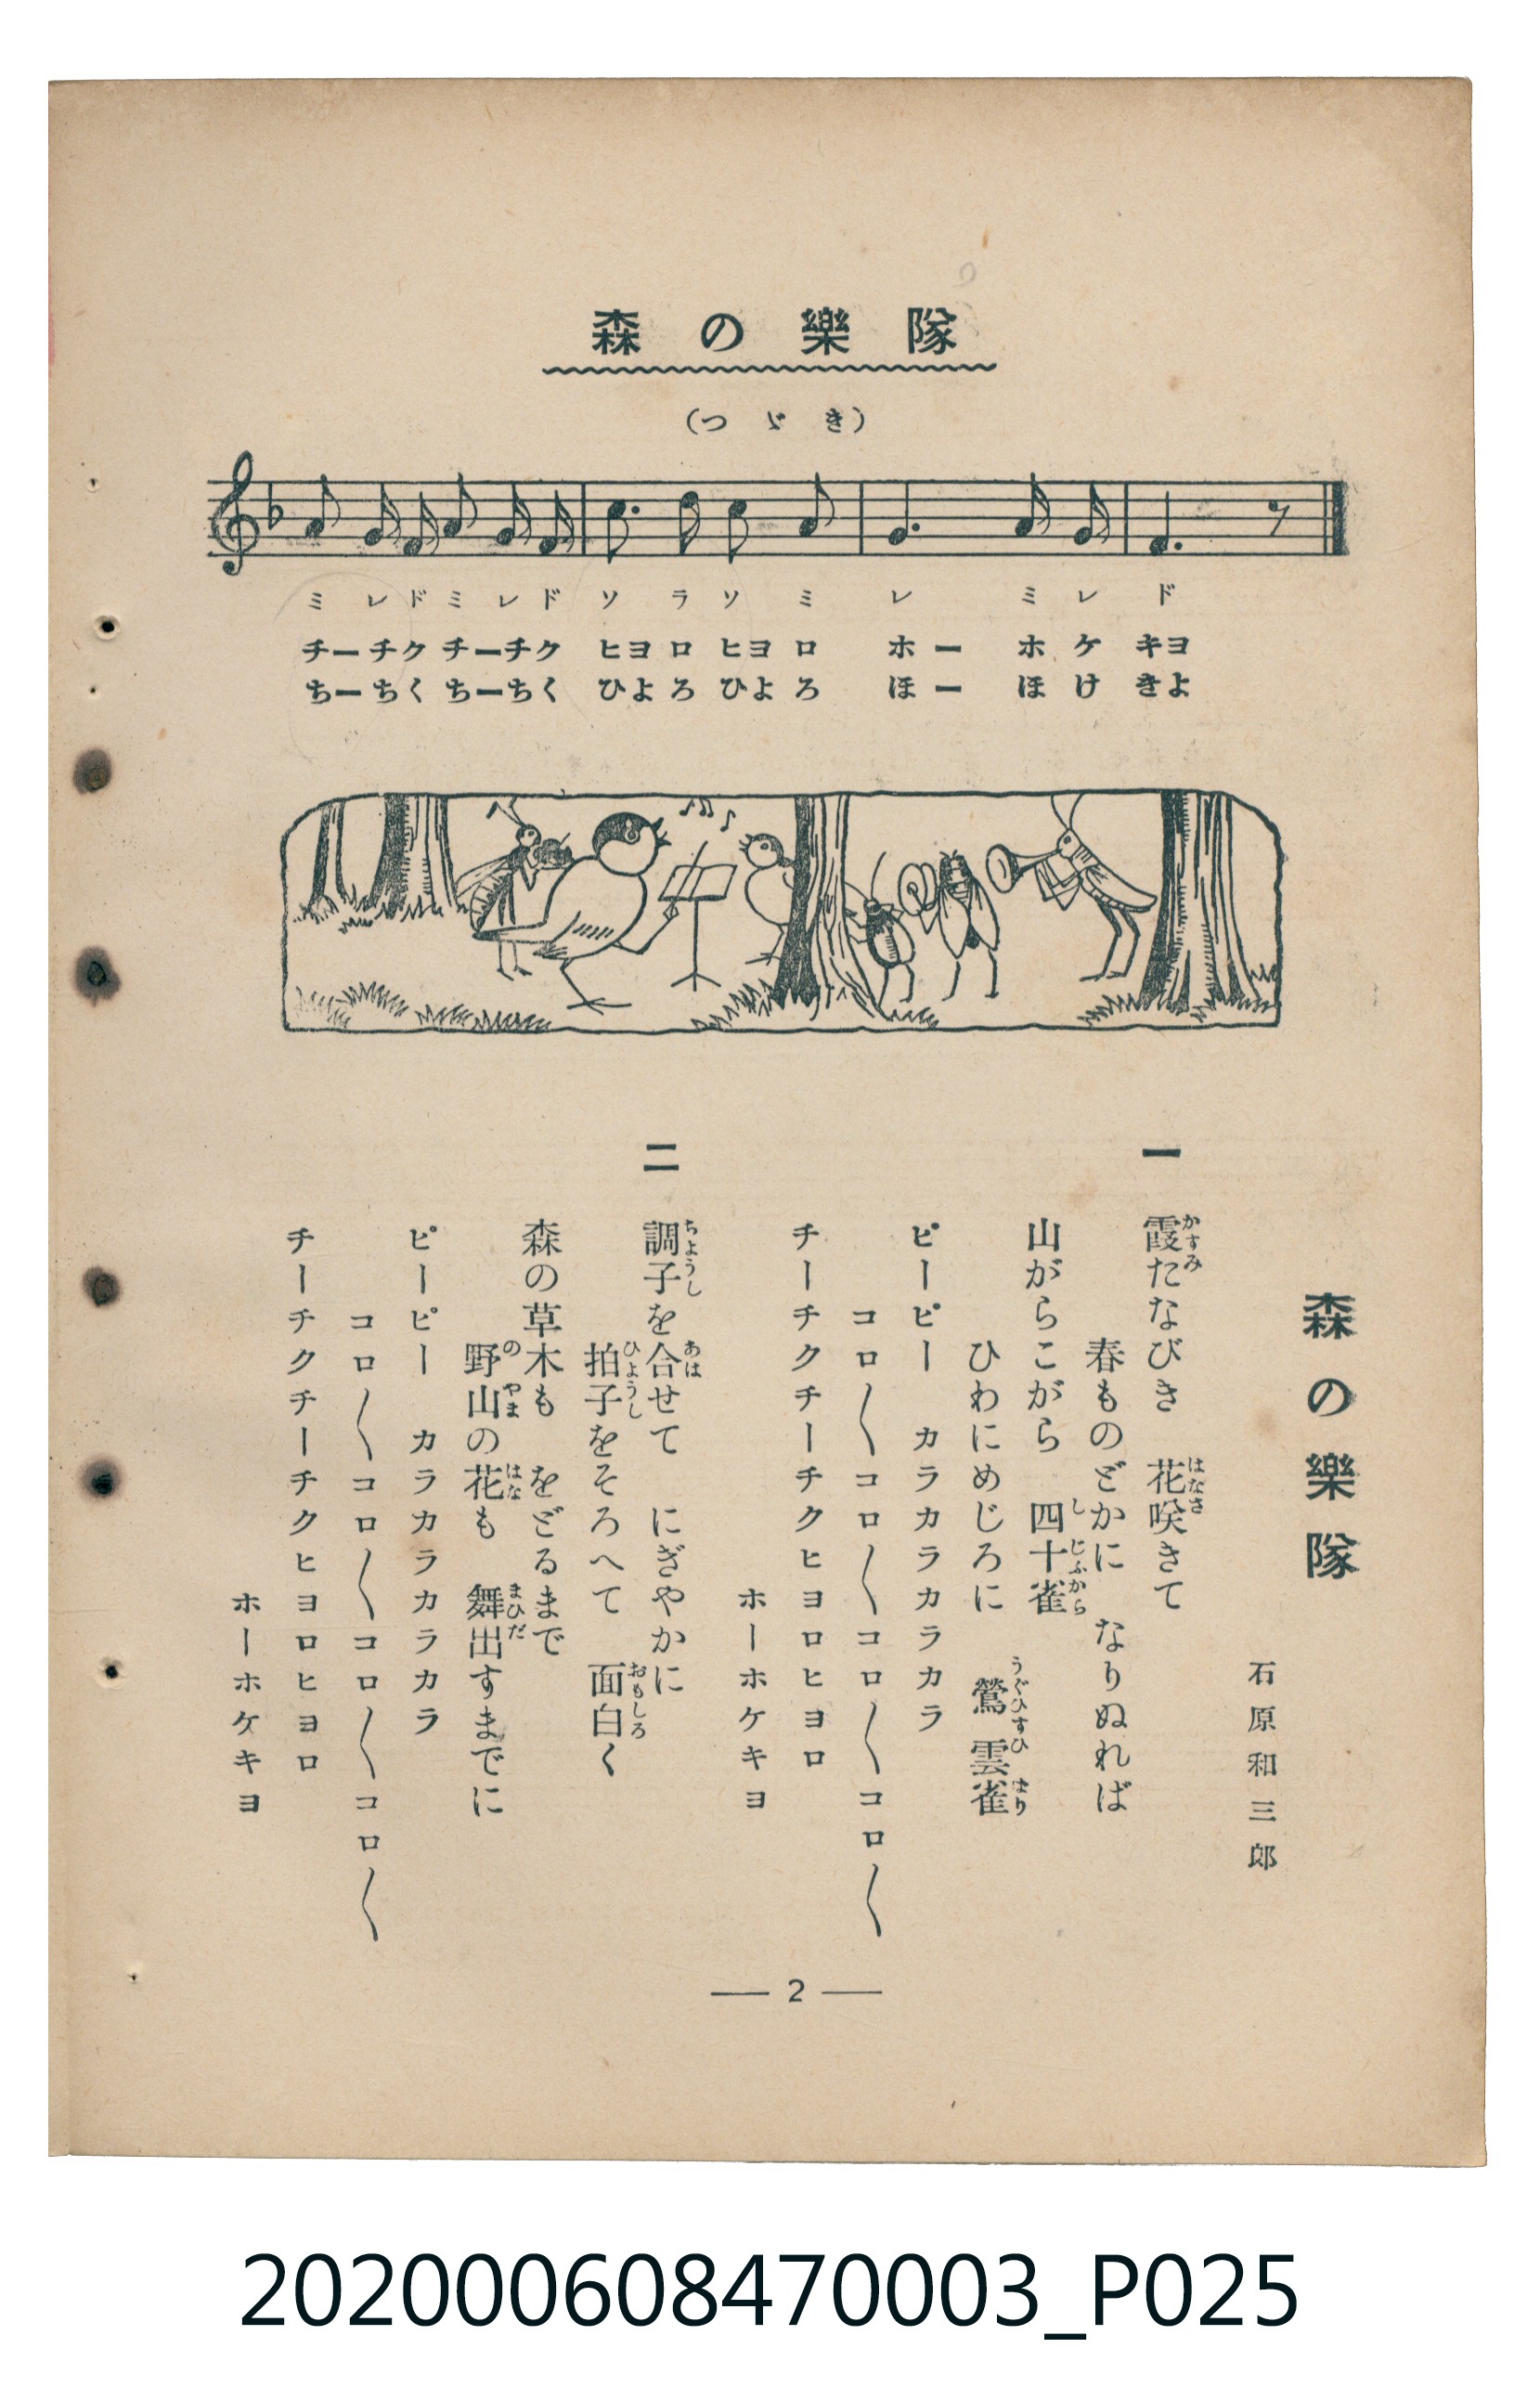 森の樂隊
(つゞき)
ミ レ ド ミ レ ド ソ ラ ソ ミ レ ミ レ ド
チーチク チーチク ヒヨロ ヒヨロ ホー ホ ケ キヨ
ちーちく ちーちく ひよろ ひよろ ほー ほ け きよ
森の樂隊
石原和三郎
一
霞たなびき 花咲きて
かすみ はなさ
春ものどかに なりぬれば
山がらこがら 四十雀
し じふから
ひわにめじろに 鶯 雲雀
うぐひす ひばり
ピーピー カラカラカラカラ
コロ〳〵コロ〳〵コロ〳〵コロ〳〵
チーチクチーチクヒヨロヒヨロ
ホーホケキヨ
二
調子を合せて にぎやかに
ちようし あは
拍子をそろへて 面白く
ひようし おもしろ
森の草木も をどるまで
野山の花も 舞出すまでに
の やま はな まひだ
ピーピー カラカラカラカラ
コロ〳〵コロ〳〵コロ〳〵コロ〳〵
チーチクチーチクヒヨロヒヨロ
ホーホケキヨ
— 2 —
202000608470003_P025